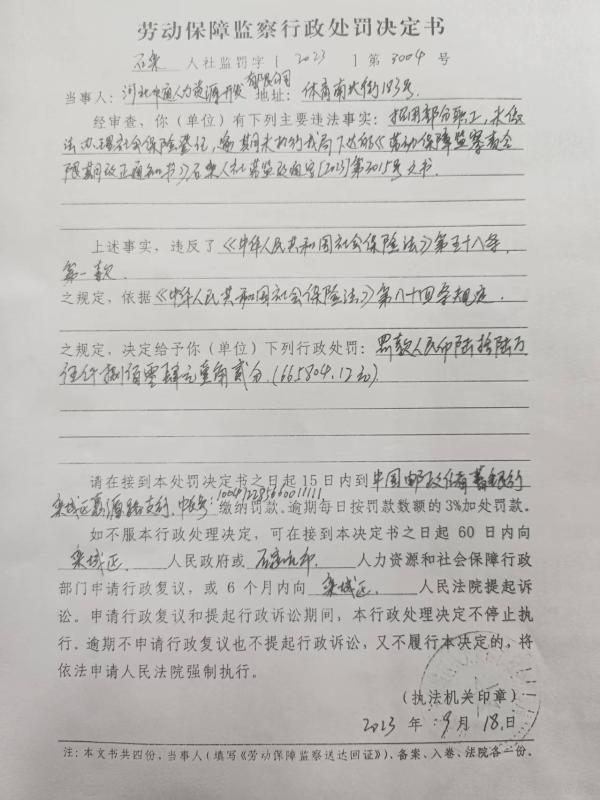 劳动保障监察行政处罚决定书
石栾 人社监罚字[ 2023 ]第 3004 号
当事人：河北中通人力资源开发有限公司 地址：体育南大街183号
经审查、你（单位）有下列主要违法事实：招用部分职工，未依
法办理社会保险登记，逾期未执行我局下达的《劳动保障监察责令
限期改正通知书》石栾人社劳监改通字[2023]第2015号文书.
上述事实，违反了《中华人民共和国社会保险法》第五十八条,
第一款
之规定，依据《中华人民共和国社会保险法》第八十四条规定
之规定，决定给予你（单位）下列行政处罚：罚款人民币陆拾陆万
伍仟捌佰零肆元壹角贰分.(665804.12元)
请在接到本处罚决定书之日起15日内到中国邮政储蓄银行
栾城区惠源路支行 缴纳罚款。逾期每日按罚款数额的3%加处罚款。
如不服本行政处理决定，可在接到本决定书之日起60日内向
栾城区 人民政府或 石家庄市 人力资源和社会保障行政
部门申请行政复议，或6个月内向 栾城区 人民法院提起诉
讼。申请行政复议和提起行政诉讼期间，本行政处理决定不停止执
行。逾期不申请行政复议也不提起行政诉讼，又不履行本决定的，将
依法申请人民法院强制执行。
（执法机关印章）
2023 年 9 月 18 日
注：本文书共四份，当事人（填写《劳动保障监察送达回证》）、备案、入卷、法院各一份。